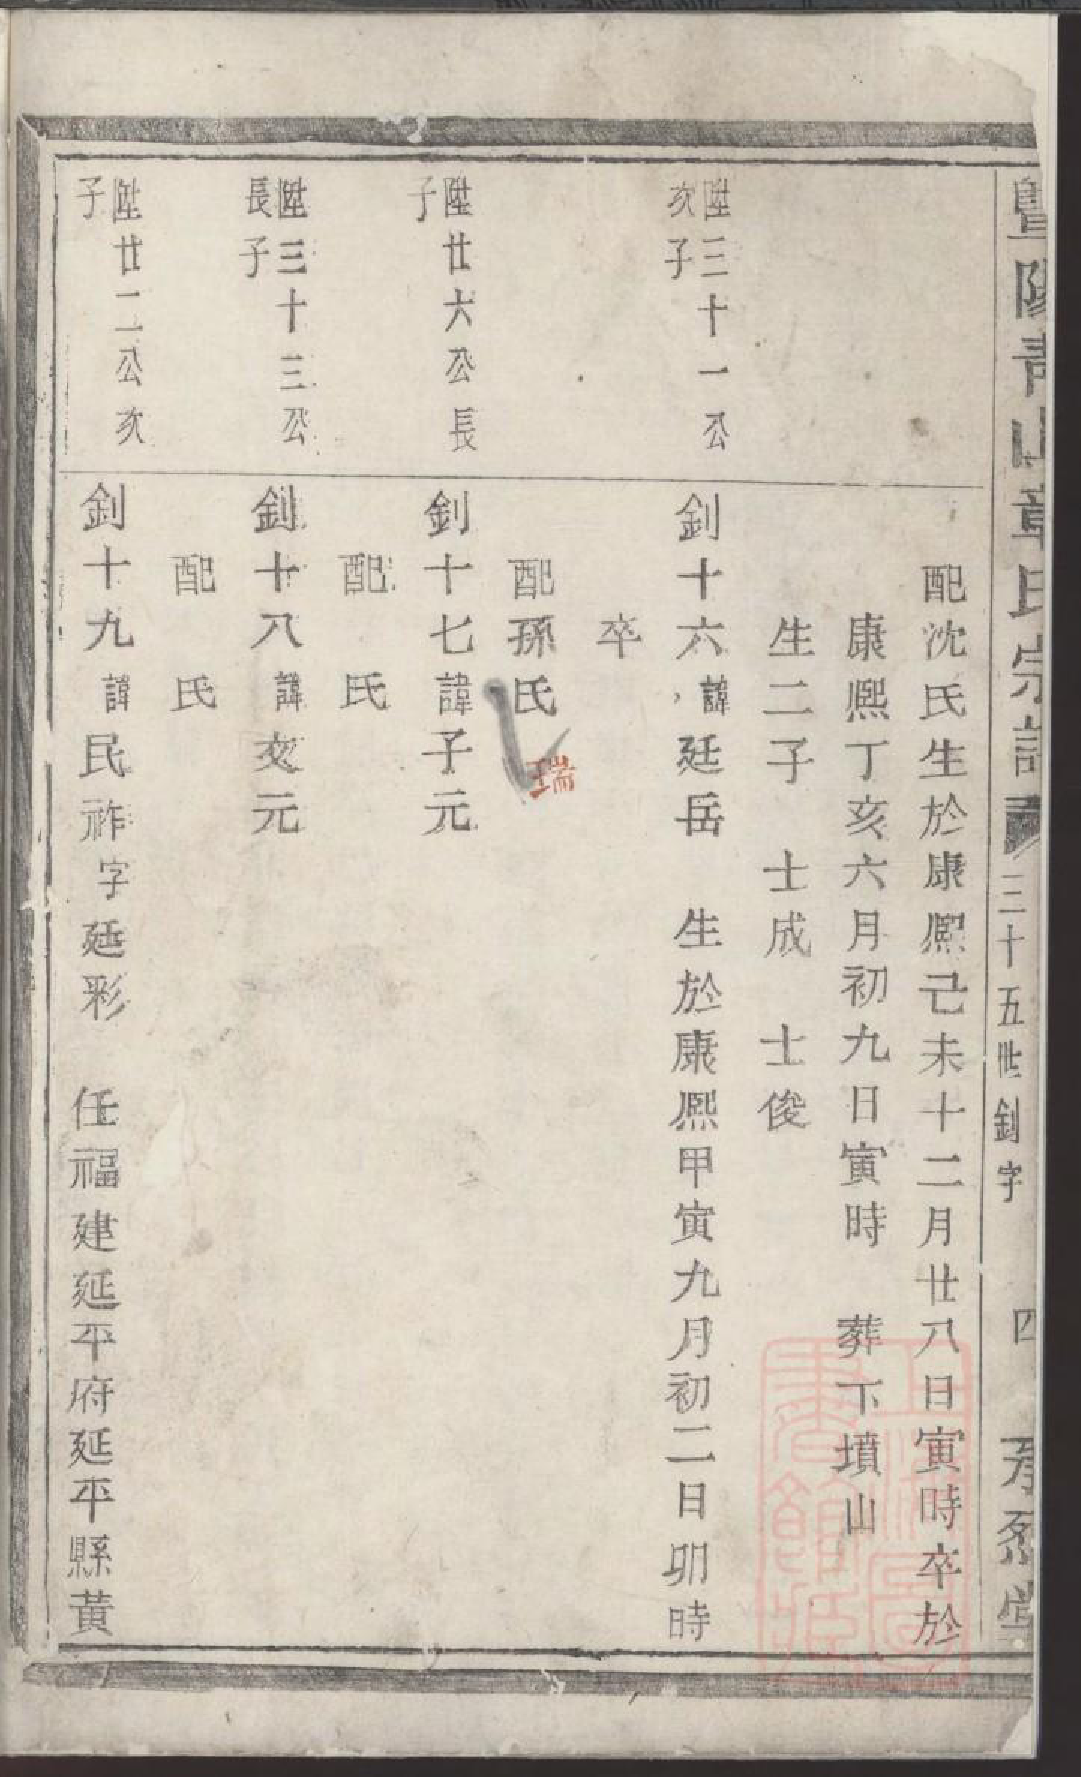 暨陽青山章氏宗譜 三十五世釗字 四 孝烈堂
配沈氏生於康熈己未十二月廿八日寅時卒於
康熈丁亥六月初九日寅時 葬下墳山
生二子 士成 士俊
陞三十一公
次子
釗十六諱廷岳 生於康熈甲寅九月初二日卯時
卒
配孫氏
瑞
陞廿六公長
子
釗十七諱子元
配 氏
陞三十三公
長子
釗十八諱文元
配 氏
陞廿二公次
子
釗十九諱民祚字廷彩 任福建延平府延平縣黃